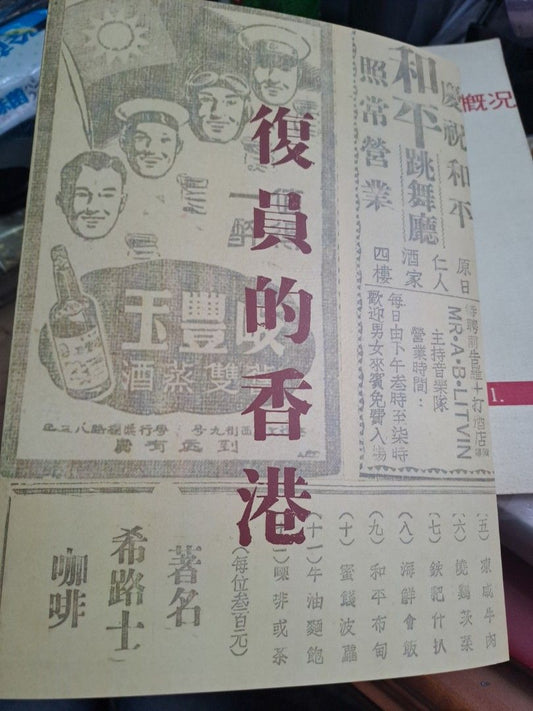 復員的香港
慶祝和平
和平跳舞廳
照常營業
原日
仁人
酒家
四樓
MR·A·B·LITVIN
主持音樂隊
營業時間：
每日由下午叁時至柒時
歡迎男女來賓免費入場
玉豐
雙蒸酒
到正有奠
(五)
(六)燒鷄茯菜
(七)鉄𨋢什扒
(八)海鮮會飯
(九)和平布甸
(十)蜜餞波蘿
(十一)牛油麵飽
㗎啡或茶
(每位叁百元)
著名
希路士
咖啡
概況
1.